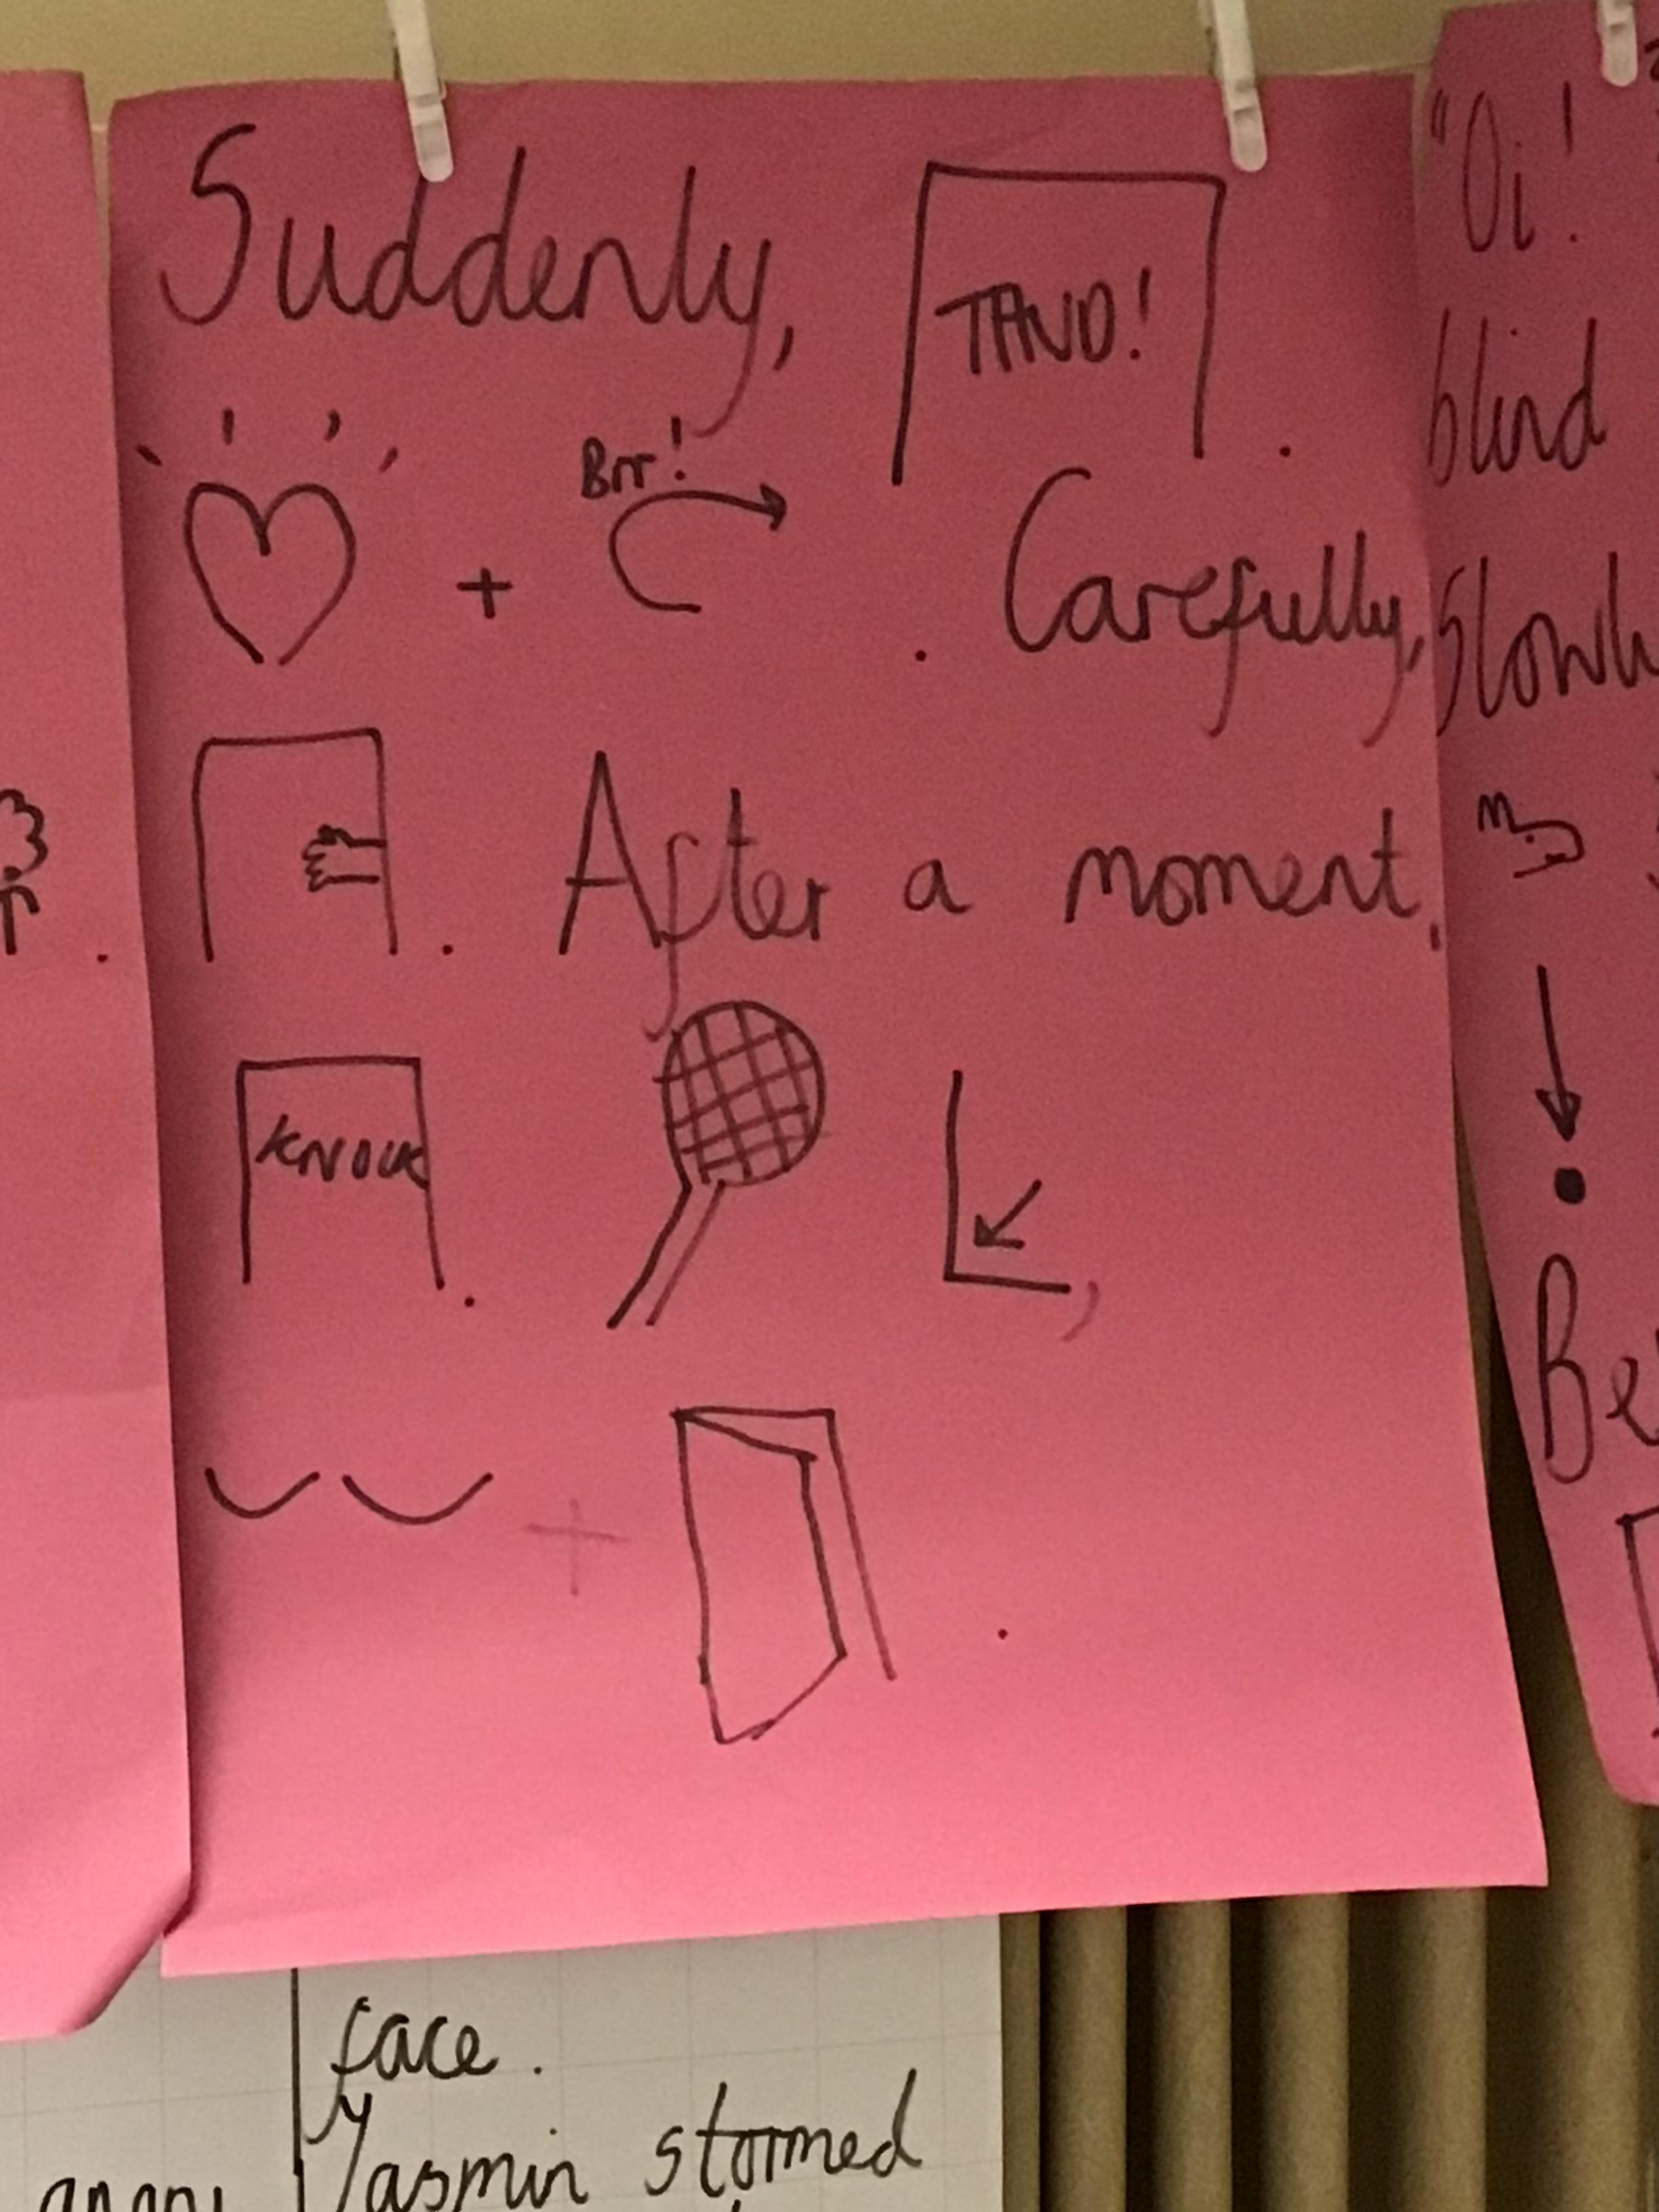 Suddenly,
TAND!
Brr!
+
. Carefully,
. After a moment,
KNOCK
.
,
+
.
"Oi!
blind
Slowly
Be
face.
Yasmin stormed